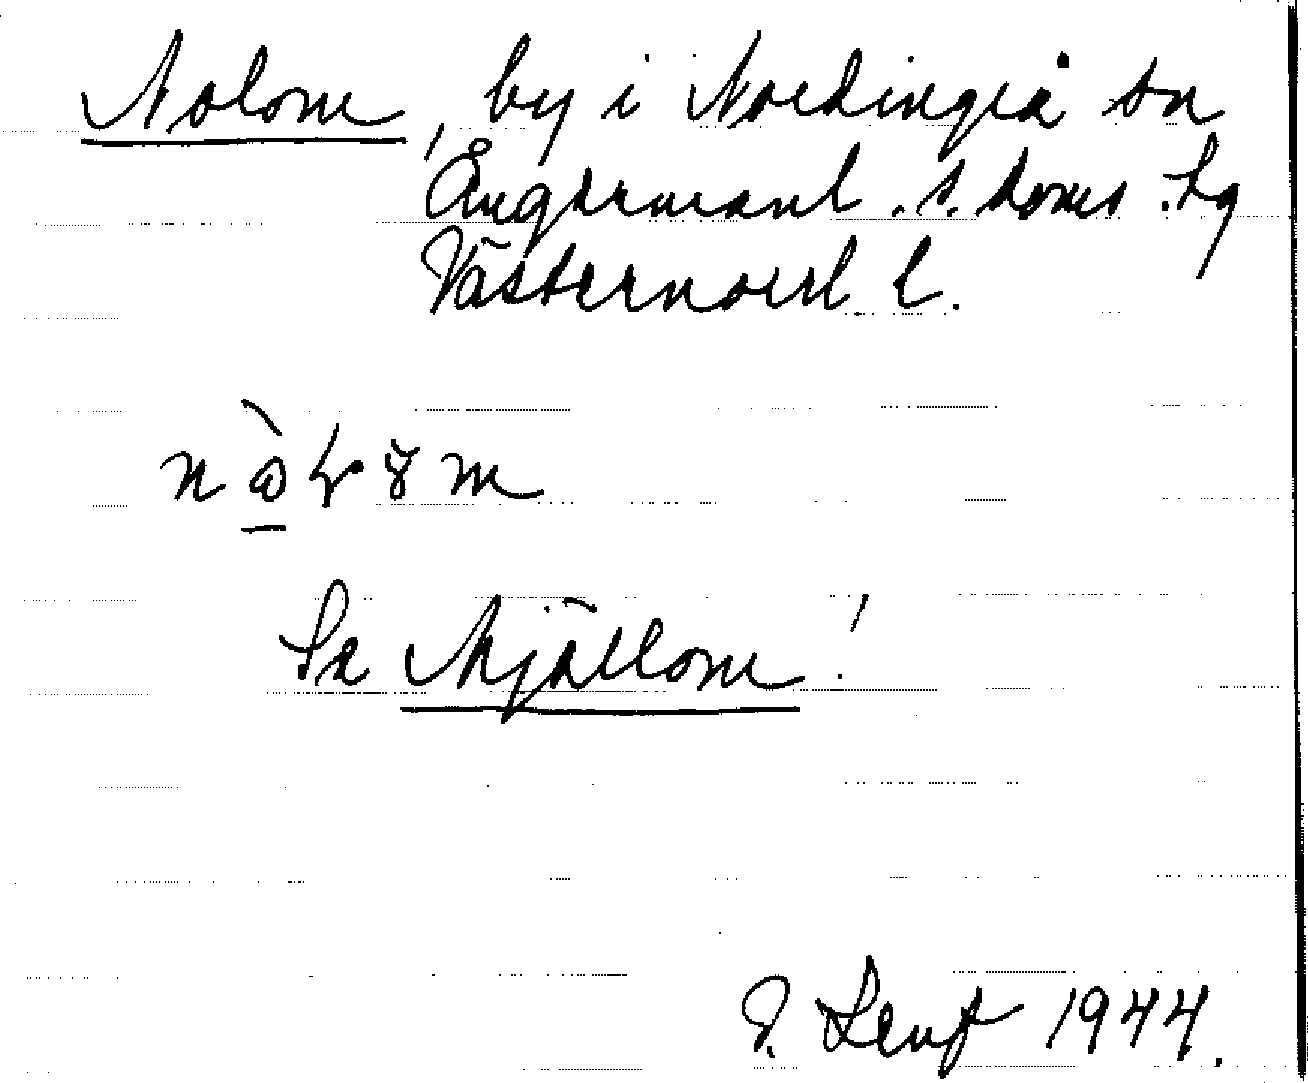 Nolom, by i Nordingrå sn
Ångermanl. s. doms. sg
Västernorrl. l.
Se Mjällom!
1944.